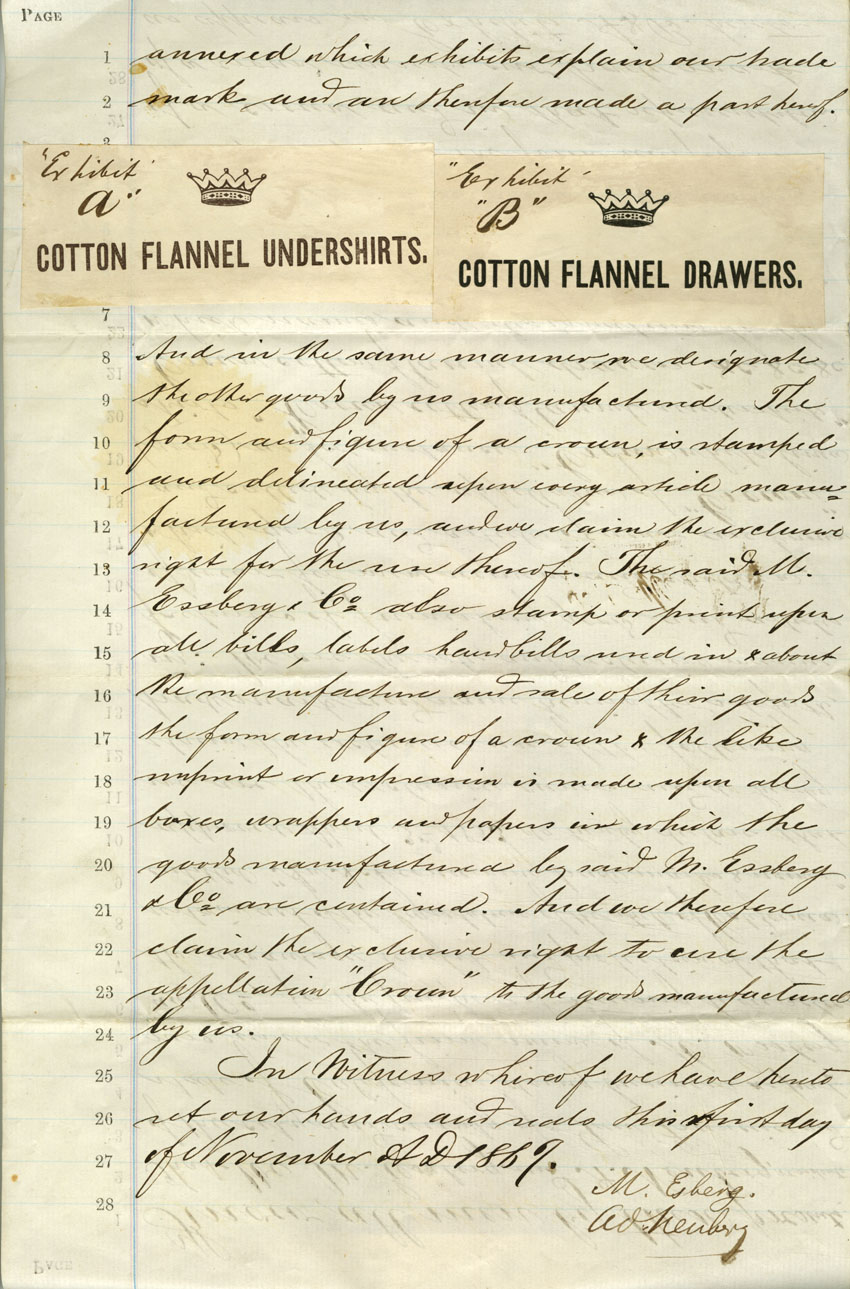 PAGE
1 annexed which exhibits explain our trade
2 mark and are therefore made a part hereof.
3
"Exhibit
A"
COTTON FLANNEL UNDERSHIRTS.
"Exhibit
"B"
COTTON FLANNEL DRAWERS.
7
8 And in the same manner we designate
9 the other goods by us manufactured. The
10 form and figure of a crown, is stamped
11 and delineated upon every article manu=
12 factured by us, and we claim the exclusive
13 right for the use thereof. The said M.
14 Essberg & Co also stamp or print upon
15 all bills, labels handbills used in & about
16 the manufacture and sale of their goods
17 the form and figure of a crown & the like
18 imprint or impression is made upon all
19 boxes, wrappers and papers in which the
20 goods manufactured by said M. Essberg
21 & Co are contained. And we therefore
22 claim the exclusive right to use the
23 appellation "Crown" to the goods manufactured
24 by us.
25 In Witness whereof we have hereto
26 set our hands and seals this first day
27 of November A D 1867.
28
M. Esberg.
Ad. Neuberg